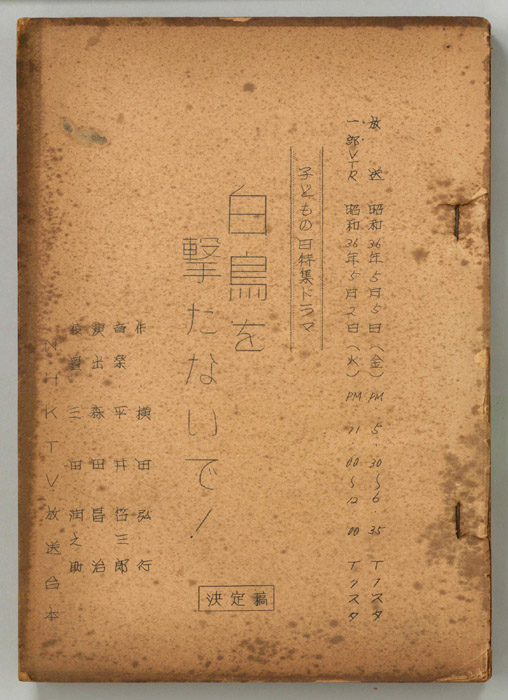 放送 昭和36年5月5日(金) PM 5.30〜6 35 Tlスタ
一部VTR 昭和36年5月2日(火) PM 11 00〜12 00 Tlスタ
子どもの日特集ドラマ
白鳥を
撃たないで!
作 横田弘行
音楽 平井哲三郎
演出 森田昌治
装置 三田潤之助
NHKTV放送台本
決定稿